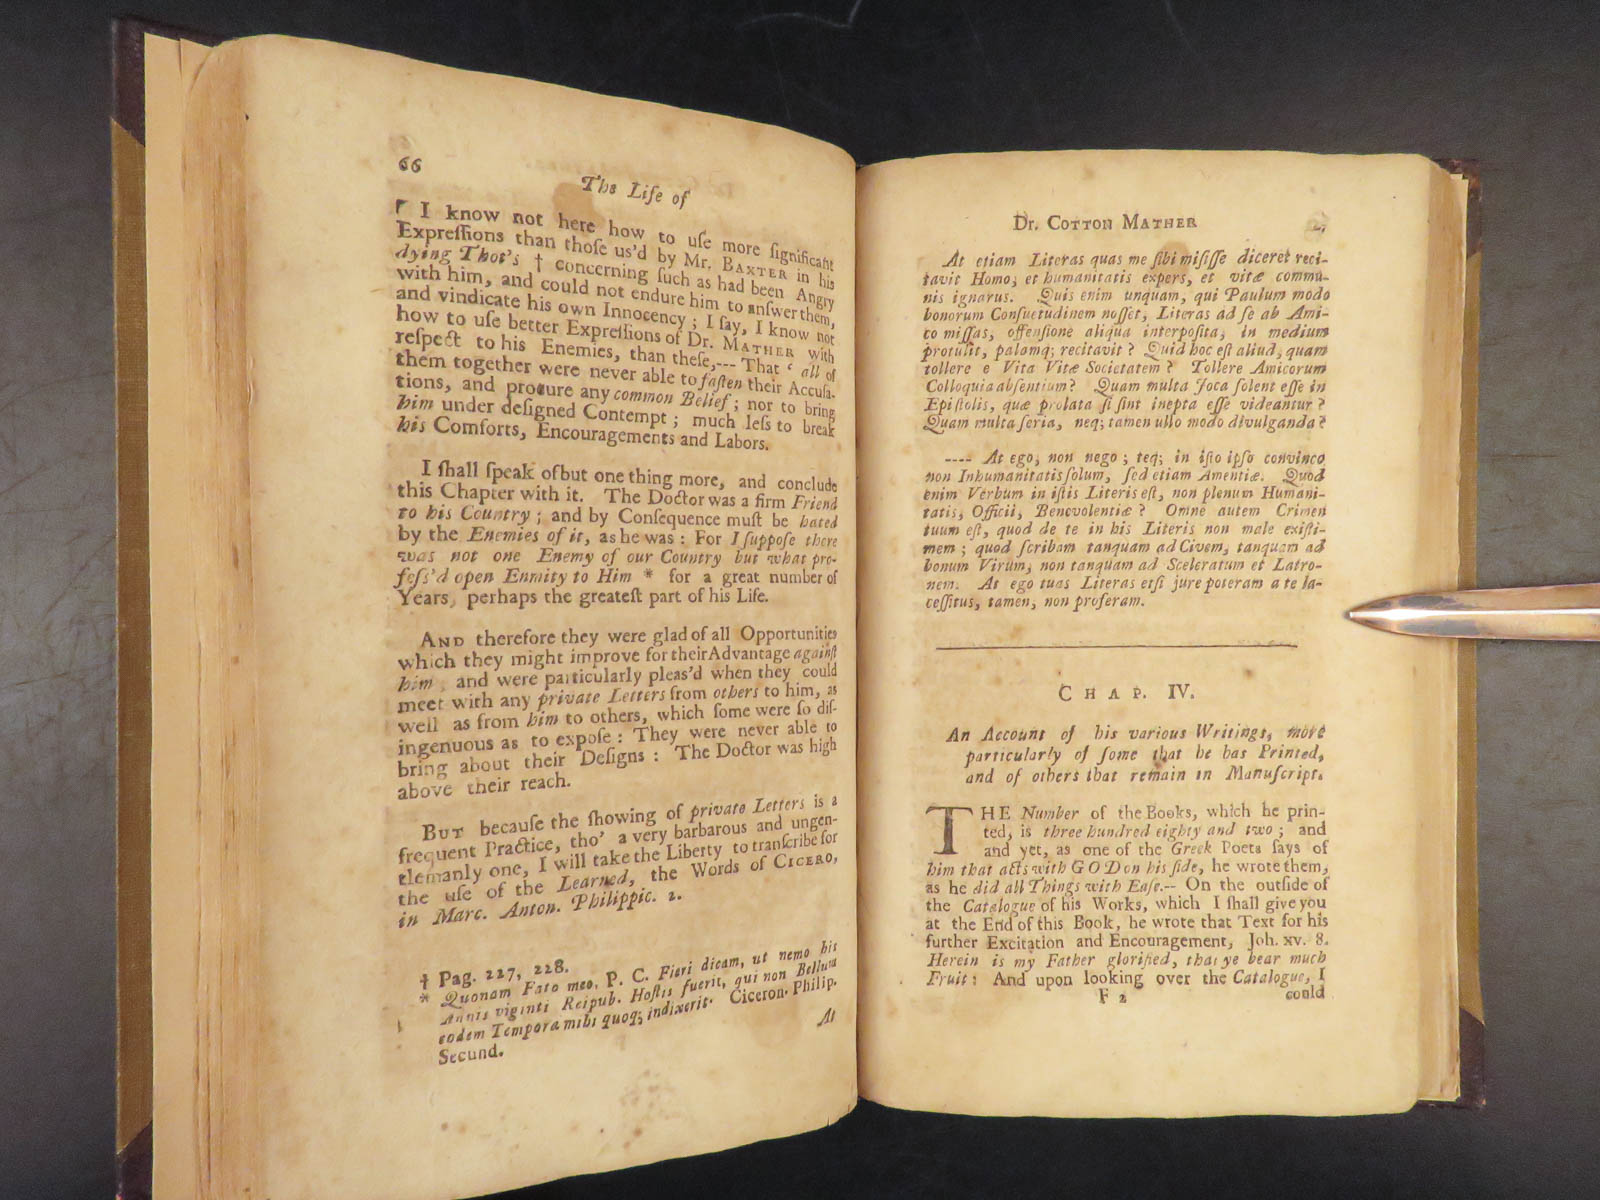 66
The Life of
I know not here how to uſe more ſignificant
Expreſſions than thoſe us'd by Mr. BAXTER in his
dying Thot's † concerning ſuch as had been Angry
with him, and could not endure him to anſwer them,
and vindicate his own Innocency; I ſay, I know not
how to uſe better Expreſſions of Dr. MATHER with
reſpect to his Enemies, than theſe,--- That ' all of
them together were never able to faſten their Accuſa-
tions, and procure any common Belief; nor to bring
him under deſigned Contempt; much leſs to break
his Comforts, Encouragements and Labors.
I ſhall ſpeak of but one thing more, and conclude
this Chapter with it. The Doctor was a firm Friend
to his Country; and by Conſequence muſt be hated
by the Enemies of it, as he was: For I ſuppoſe there
was not one Enemy of our Country but what pro-
feſs'd open Enmity to Him * for a great number of
Years, perhaps the greateſt part of his Life.
AND therefore they were glad of all Opportunities
which they might improve for their Advantage againſt
him, and were particularly pleas'd when they could
meet with any private Letters from others to him, as
well as from him to others, which ſome were ſo diſ-
ingenuous as to expoſe: They were never able to
bring about their Deſigns: The Doctor was high
above their reach.
BUT becauſe the ſhowing of private Letters is a
frequent Practice, tho' a very barbarous and ungen-
tlemanly one, I will take the Liberty to tranſcribe for
the uſe of the Learned, the Words of CICERO,
in Marc. Anton. Philippic. 2.
† Pag. 227, 228.
* Quonam Fato meo, P. C. Fieri dicam, ut nemo his
Annis viginti Reipub. Hoſtis fuerit, qui non Bellum
eodem Tempora mihi quoq; indixerit. Ciceron. Philip.
Secund.
At
Dr. COTTON MATHER
At etiam Literas quas me ſibi miſiſſe diceret reci-
tavit Homo, et humanitatis expers, et vitæ commu-
nis ignarus. Quis enim unquam, qui Paulum modo
bonorum Conſuetudinem noſſet, Literas ad ſe ab Ami-
co miſſas, offenſione aliqua interpoſita, in medium
protulit, palamq; recitavit? Quid hoc eſt aliud, quam
tollere e Vita Vitæ Societatem? Tollere Amicorum
Colloquia abſentium? Quam multa Joca ſolent eſſe in
Epiſtolis, quæ prolata ſi ſint inepta eſſe videantur?
Quam multa ſeria, neq; tamen ullo modo divulganda?
---- At ego, non nego; teq; in iſto ipſo convinco
non Inhumanitatis ſolum, ſed etiam Amentiæ. Quod
enim Verbum in iſtis Literis eſt, non plenum Humani-
tatis, Officii, Benevolentiæ? Omne autem Crimen
tuum eſt, quod de te in his Literis non male exiſti-
mem; quod ſcribam tanquam ad Civem, tanquam ad
bonum Virum, non tanquam ad Sceleratum et Latro-
nem. At ego tuas Literas etſi jure poteram a te la-
ceſſitus, tamen, non proferam.
CHAP. IV.
An Account of his various Writings, more
particularly of ſome that he has Printed,
and of others that remain in Manuſcript.
THE Number of the Books, which he prin-
ted, is three hundred eighty and two; and
and yet, as one of the Greek Poets ſays of
him that acts with GOD on his ſide, he wrote them,
as he did all Things with Eaſe.-- On the outſide of
the Catalogue of his Works, which I ſhall give you
at the End of this Book, he wrote that Text for his
further Excitation and Encouragement, Joh. xv. 8.
Herein is my Father glorified, that ye bear much
Fruit: And upon looking over the Catalogue, I
F 2
could